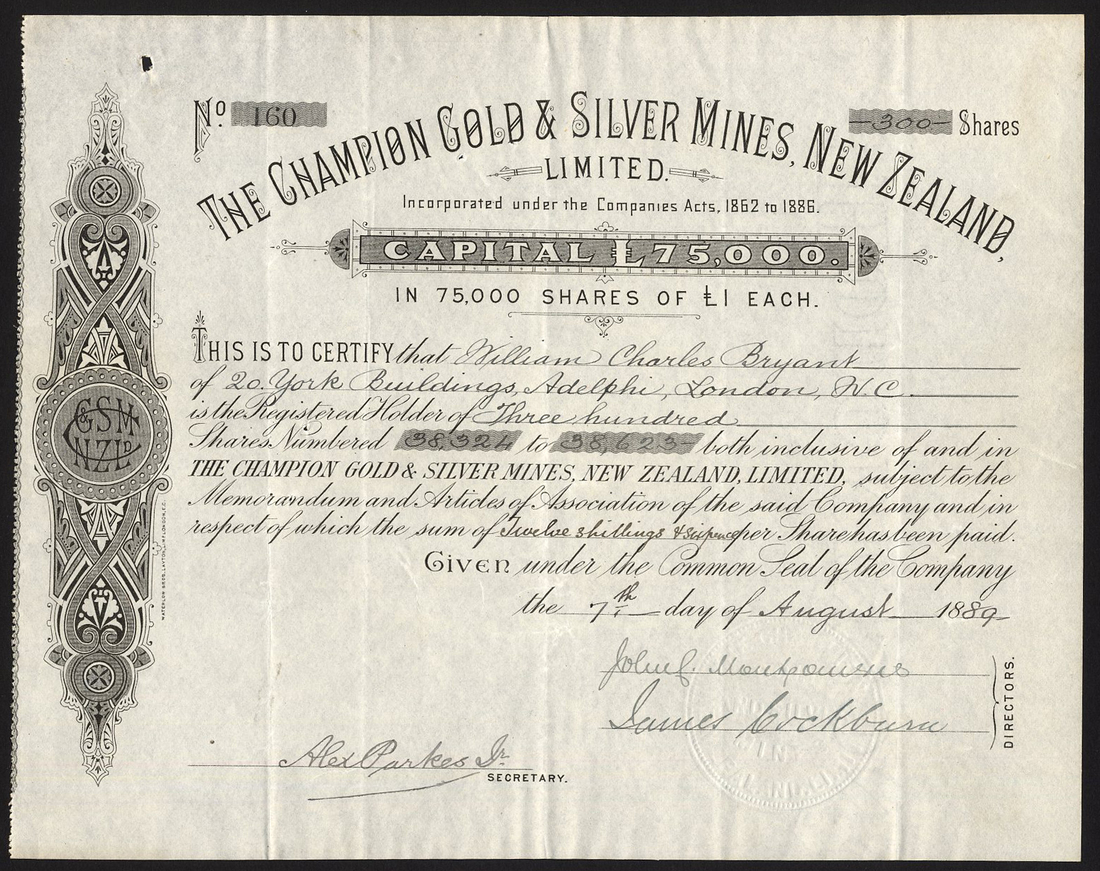 No. 160
-300- Shares
THE CHAMPION GOLD & SILVER MINES, NEW ZEALAND,
LIMITED.
Incorporated under the Companies Acts, 1862 to 1886.
CAPITAL £75,000.
IN 75,000 SHARES OF £1 EACH.
THIS IS TO CERTIFY that William Charles Bryant
of 20. York Buildings, Adelphi, London, W.C.
is the Registered Holder of Three hundred
Shares Numbered 38,324 to 38,623 both inclusive of and in
THE CHAMPION GOLD & SILVER MINES, NEW ZEALAND, LIMITED, subject to the
Memorandum and Articles of Association of the said Company and in
respect of which the sum of Twelve shillings & sixpence per Share has been paid.
GIVEN under the Common Seal of the Company
the 7th day of August 1889
James Cockburn
DIRECTORS.
Alex Parkes Jr.
SECRETARY.
CGSM
NZLD
WATERLOW BROS. & LAYTON, LIMD, LONDON, E.C.